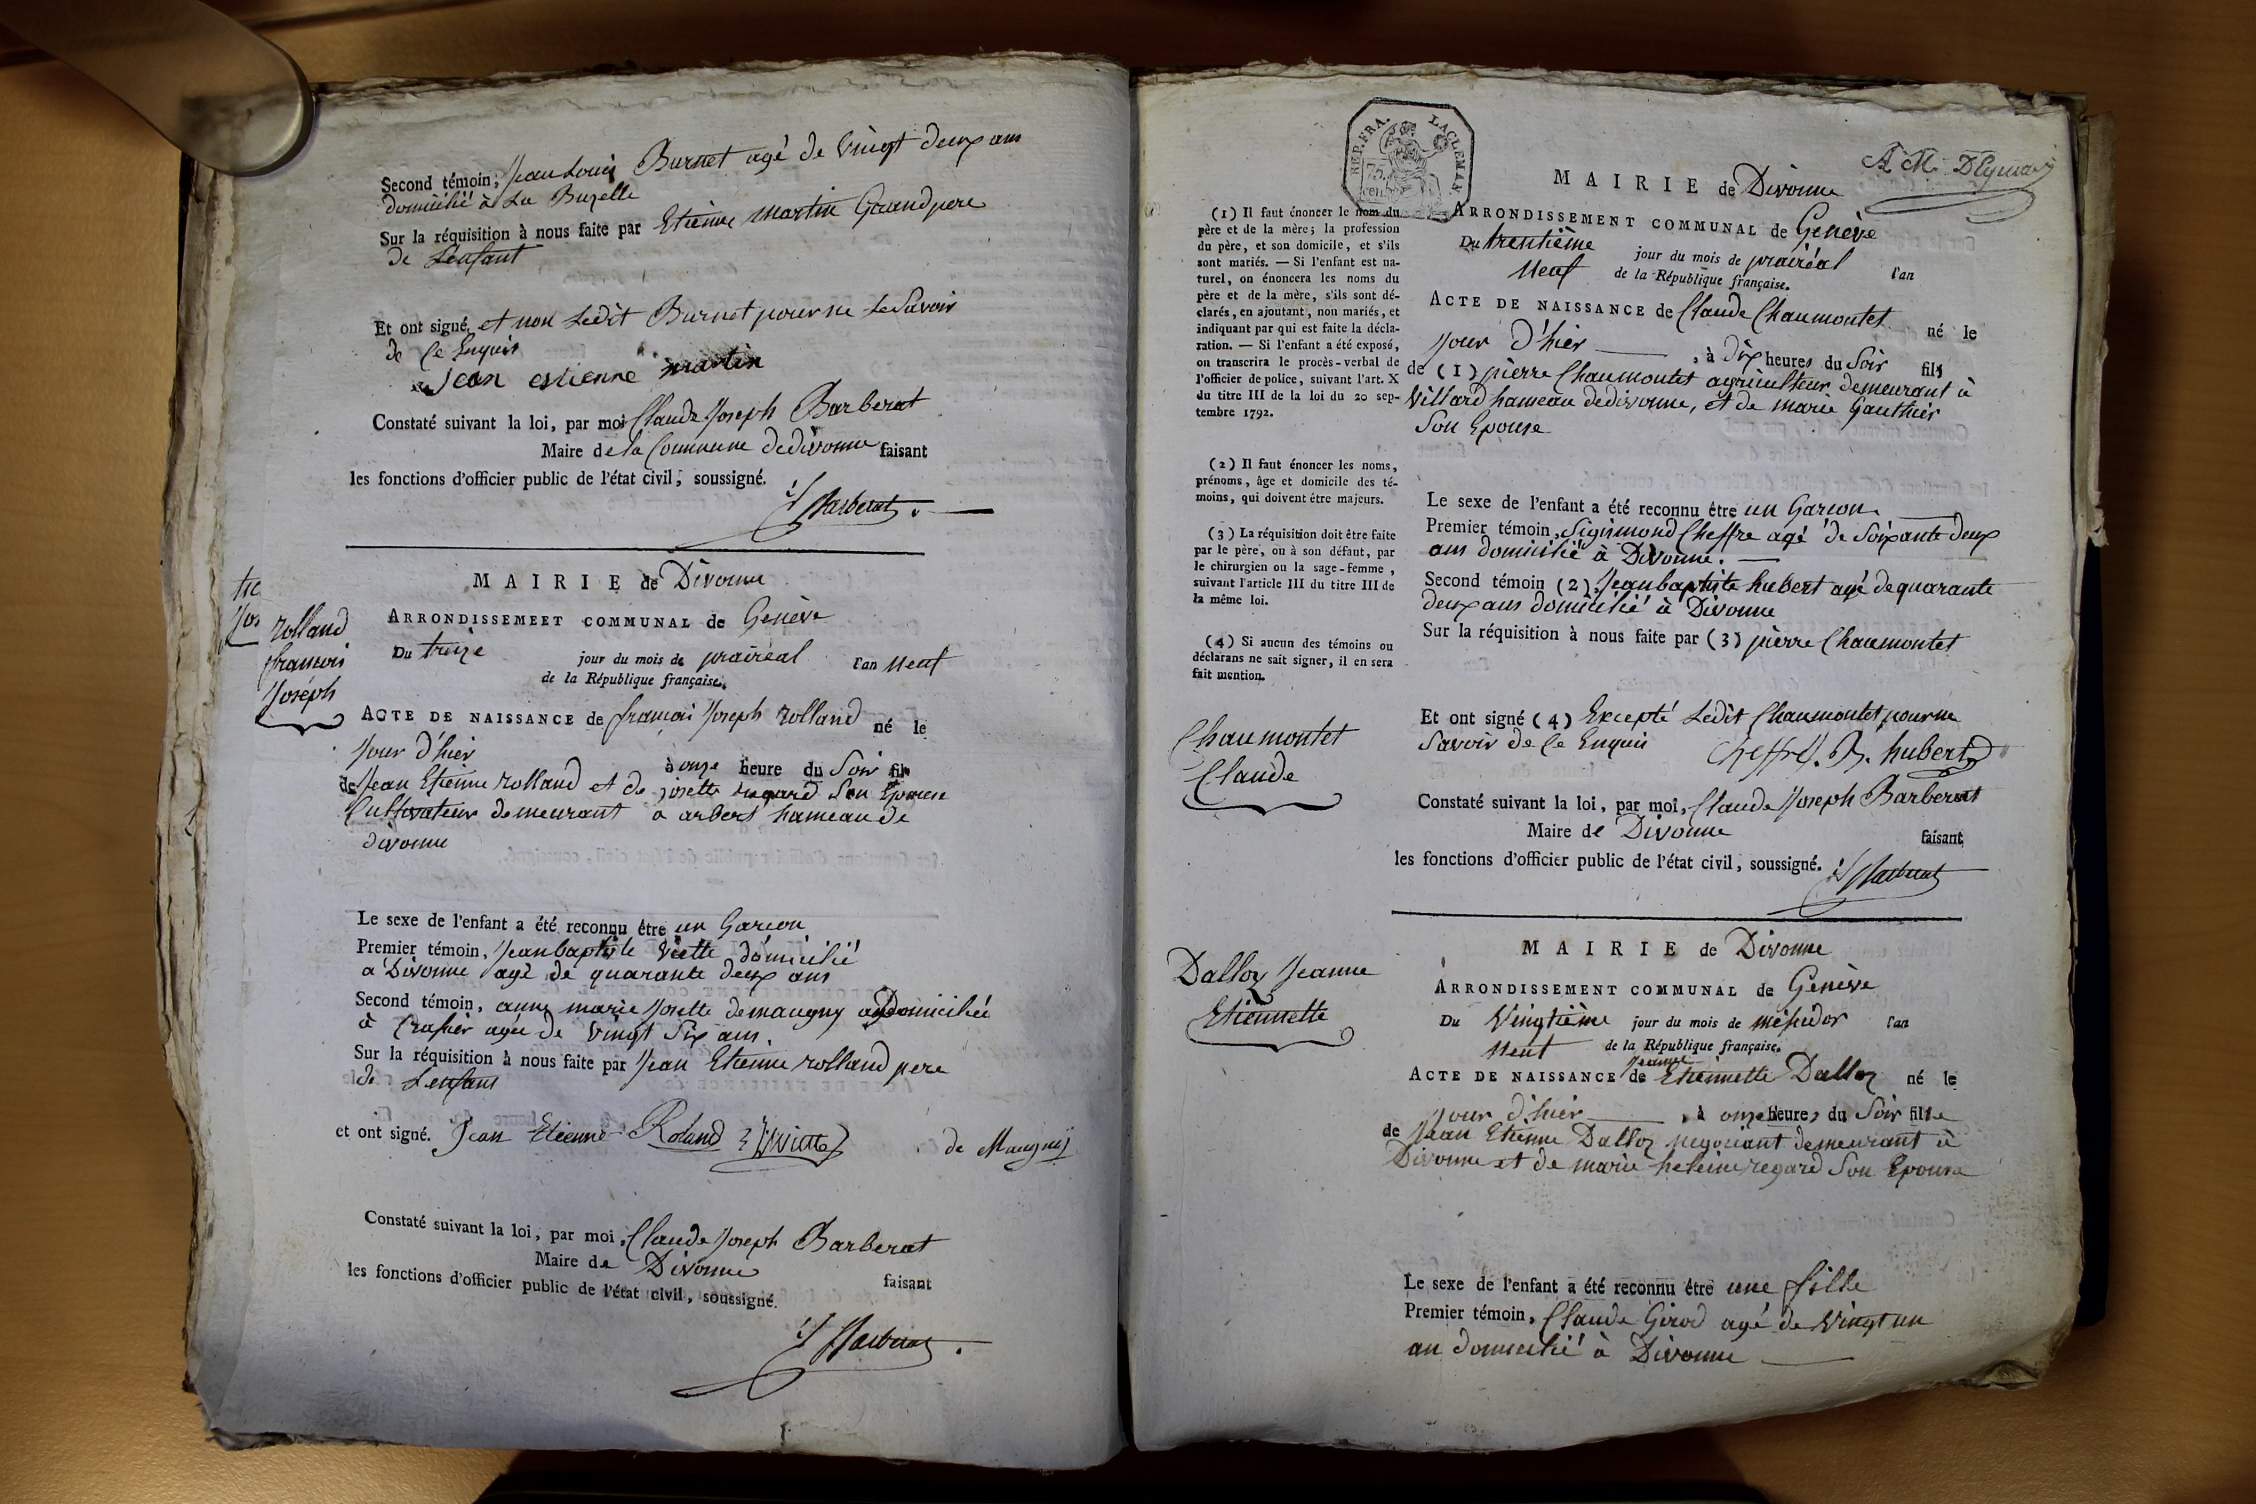 Second témoin, Jean Louis Burnet agé de Vingt deux ans
domicilié à La Buzelle
Sur la réquisition à nous faite par Etienne Martin Grandpere
de Lenfant
Et ont signé et non Ledit Burnet pour ne Le Savoir
de Ce Enquis
Jean estienne martin
Constaté suivant la loi, par moi Claude Joseph Barberat
Maire de la Commune de divonne faisant
les fonctions d'officier public de l'état civil, soussigné.
Barberat
rolland
francois
Joseph
MAIRIE de Divonne
ARRONDISSEMEET COMMUNAL de Genève
Du treize jour du mois de prairéal l'an Neuf
de la République française.
ACTE DE NAISSANCE de francois Joseph rolland né le
Jour d'hier
à onze heure du Soir fils
de Jean Etienne rolland et de josette regard Son Epouse
Cultivateur demeurant a arbert hameau de
divonne
Le sexe de l'enfant a été reconnu être un Garcon
Premier témoin, Jean baptiste Viette domicilié
a Divonne agé de quarante deux ans
Second témoin, anne marie Josette demaugny domiciliée
à Crassier agée de Vingt Six ans.
Sur la réquisition à nous faite par Jean Etienne rolland pere
de Lenfant
et ont signé. Jean Etienne Roland Viette de Maugny
Constaté suivant la loi, par moi, Claude Joseph Barberat
Maire de Divonne faisant
les fonctions d'officier public de l'état civil, soussigné.
Barberat
REP. FRA.
75.
cent
A M
(1) Il faut énoncer le nom du
père et de la mère; la profession
du père, et son domicile, et s'ils
sont mariés. — Si l'enfant est na-
turel, on énoncera les noms du
père et de la mère, s'ils sont dé-
clarés, en ajoutant, non mariés, et
indiquant par qui est faite la décla-
ration. — Si l'enfant a été exposé,
on transcrira le procès-verbal de
l'officier de police, suivant l'art. X
du titre III de la loi du 20 sep-
tembre 1792.
(2) Il faut énoncer les noms,
prénoms, âge et domicile des té-
moins, qui doivent être majeurs.
(3) La réquisition doit être faite
par le père, ou à son défaut, par
le chirurgien ou la sage-femme,
suivant l'article III du titre III de
la même loi.
(4) Si aucun des témoins ou
déclarans ne sait signer, il en sera
fait mention.
Chaumontet
Claude
MAIRIE de Divonne
ARRONDISSEMENT COMMUNAL de Genève
Du trentième jour du mois de prairéal l'an
Neuf de la République française.
ACTE DE NAISSANCE de Claude Chaumontet né le
Jour d'hier, à dix heures du Soir fils
de (1) pierre Chaumontet agriculteur demeurant à
Villard hameau dedivonne, et de marie Gauthier
Son Epouse
Le sexe de l'enfant a été reconnu être un Garcon.
Premier témoin, Sigismond Cheffre agé de Soixante deux
ans domicilié à Divonne.
Second témoin (2), Jean baptiste hubert agé de quarante
deux ans domicilié à Divonne
Sur la réquisition à nous faite par (3) pierre Chaumontet
Et ont signé (4) Excepté Ledit Chaumontet pour ne
Savoir de Ce Enquis Cheffre. B. hubert
Constaté suivant la loi, par moi, Claude Joseph Barberat
Maire de Divonne faisant
les fonctions d'officier public de l'état civil, soussigné.
Barberat
Dalloz Jeanne
Etiennette
MAIRIE de Divonne
ARRONDISSEMENT COMMUNAL de Genève
Du Vingtième jour du mois de messidor l'an
Neuf de la République française.
Jeanne
ACTE DE NAISSANCE de Etiennette Dalloz né le
Jour d'hier, à onze heures du Soir fille
de Jean Etienne Dalloz negociant demeurant à
Divonne et de marie heleine regard Son Epouse
Le sexe de l'enfant a été reconnu être une fille
Premier témoin, Claude Girod agé de Vingt un
an domicilié à Divonne